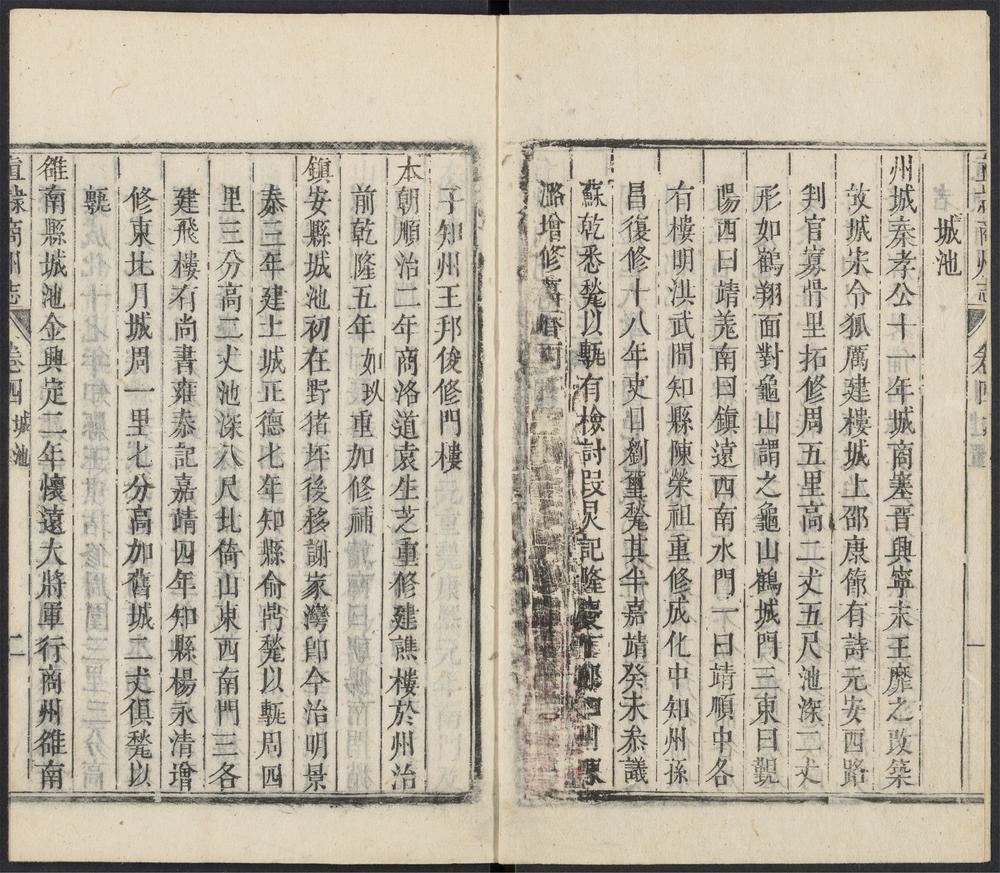 城池
州城秦孝公十一年城商塞晋興寧末王靡之改築
故城宋令狐厲建樓城上邵康節有詩元安西路
判官寡骨里拓修周五里高二丈五尺池深二丈
形如鶴翔面對龜山謂之龜山鶴城門三東曰覲
陽西曰靖羗南曰鎮遠西南水門一曰靖順中各
有樓明洪武間知縣陳榮祖重修成化中知州孫
昌復修十八年吏目劉璽甃其半嘉靖癸未叅議
蘇乾悉甃以甎有檢討叚炅記隆慶
潞增修
子知州王邦俊修門樓
本朝順治二年商洛道袁生芝重修建譙樓於州治
前乾隆五年知州如玖重加修補
鎮安縣城池初在野猪坪後移謝家灣卽今治明景
泰三年建土城正德七年知縣俞鸑甃以甎周四
里三分高二丈池深八尺北倚山東西南門三各
建飛樓有尚書雍泰記嘉靖四年知縣楊永清增
修東北月城周一里七分高加舊城二丈俱甃以
甎
雒南縣城池金興定二年懷遠大將軍行商州雒南
直隸商州志 卷四 城池 二